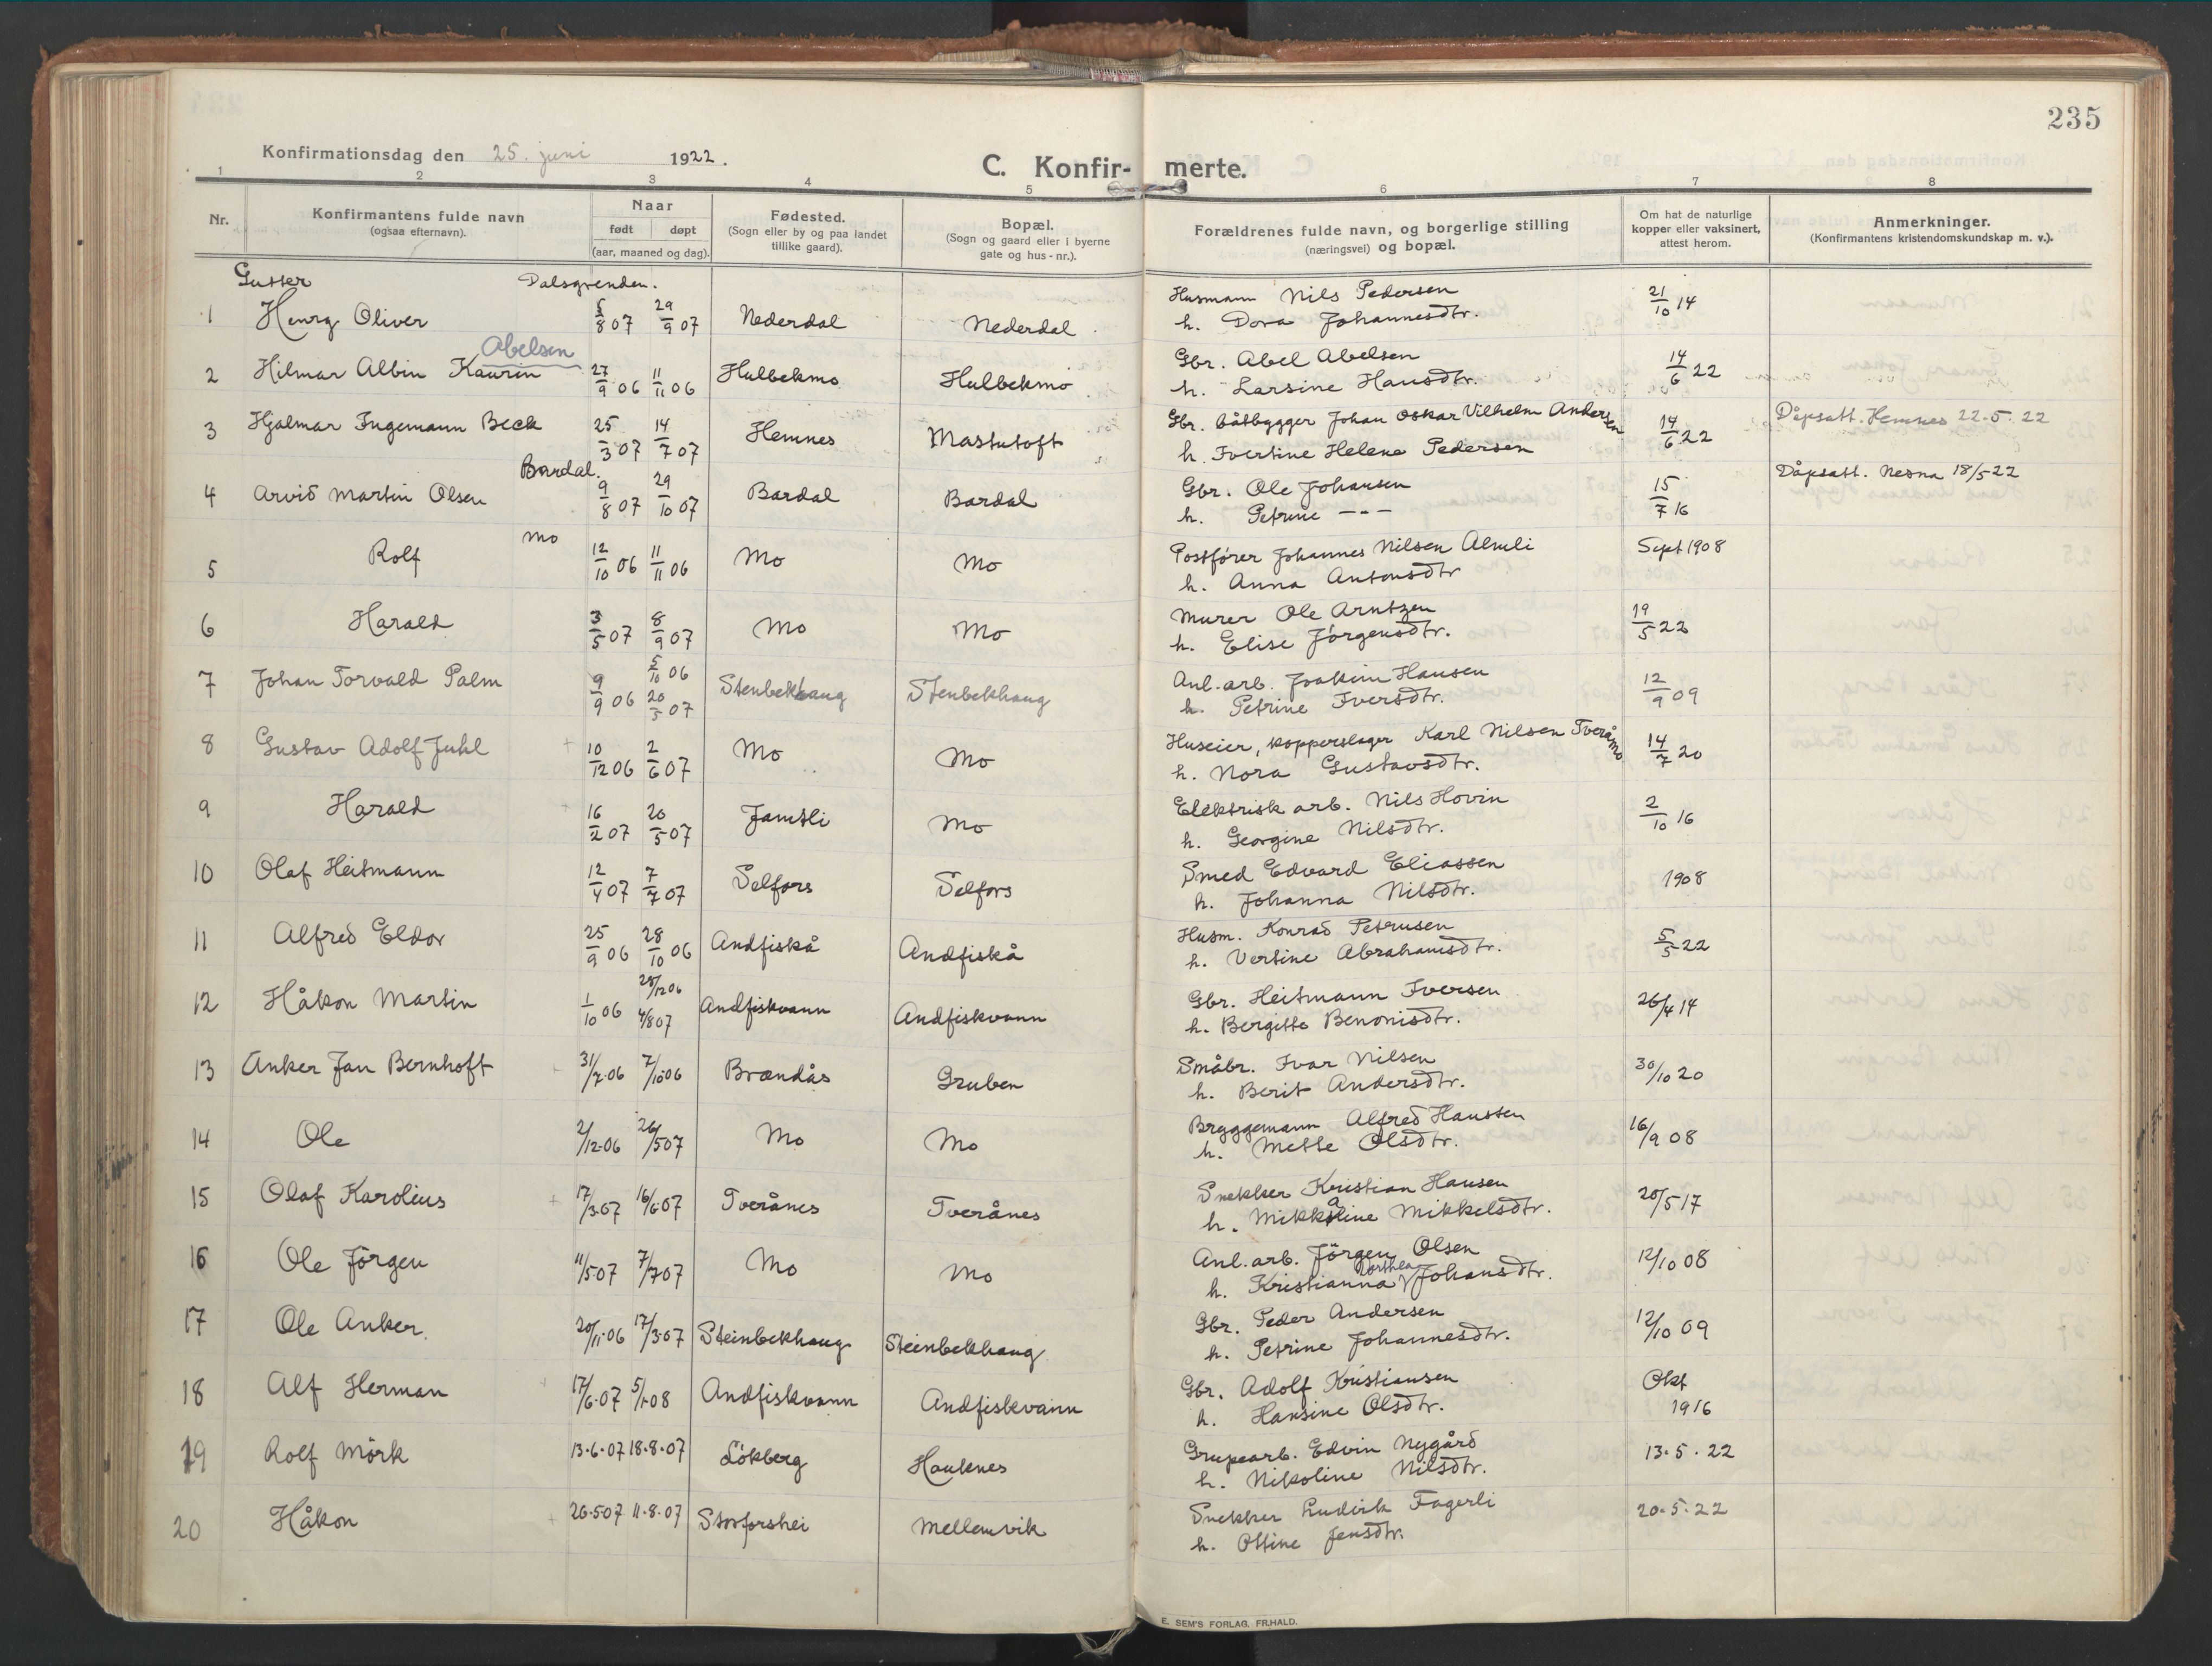 235
Konfirmationsdag den 25. juni 1922.
C. Konfir- merte.
1 2 3 4 5 6 7 8
Nr.
Konfirmantens fulde navn
(ogsaa efternavn).
Naar
født døpt
(aar, maaned og dag).
Fødested.
(Sogn eller by og paa landet
tillike gaard).
Bopæl.
(Sogn og gaard eller i byerne
gate og hus-nr.).
Forældrenes fulde navn, og borgerlige stilling
(næringsvei) og bopæl.
Om hat de naturlige
kopper eller vaksinert,
attest herom.
Anmerkninger.
(Konfirmantens kristendomskundskap m. v.).
Gutter Dalsgrenden.
1 Henry Oliver 5/8 07 29/9 07 Nederdal Nederdal Husmann Nils Pedersen 21/10 14
h. Dora Johannesdtr.
Abelsen
2 Hilmar Albin Kaurin 27/9 06 11/11 06 Hulbekmo Hulbekmo Gbr. Abel Abelsen 14/6 22
h. Larsine Hansdtr.
3 Hjalmar Ingemann Beck 25/3 07 14/7 07 Hemnes Mastutoft Gbr. båtbygger Johan Oskar Vilhelm Andersen 14/6 22 Dåpsatt. Hemnes 22-5-22
h. Ivertine Helene Pedersen
Bardal.
4 Arvid Martin Olsen 9/8 07 29/10 07 Bardal Bardal Gbr. Ole Johansen 15/7 16 Dåpsatt. Nesna 18/5-22
h. Petrine – – –
Mo
5 Rolf 12/10 06 11/11 06 Mo Mo Postfører Johannes Nilsen Almli Sept 1908
h. Anna Antonsdtr
6 Harald 3/5 07 8/9 07 Mo Mo Murer Ole Arntzen 19/5 22
h. Elise Jørgensdtr.
7 Johan Torvald Palm 9/9 06 5/10 06 20/5 07 Stenbekhaug Stenbekhaug Anl. arb. Joakim Hansen 12/9 09
h. Petrine Iversdtr.
8 Gustav Adolf Juhl + 10/12 06 2/6 07 Mo Mo Huseier, kopperslager Karl Nilsen Tveråmo 14/7 20
h. Nora Gustavsdtr.
9 Harald + 16/2 07 20/5 07 Jamtli Mo Elektrisk arb. Nils Hovin 2/10 16
h. Georgine Nilsdtr.
10 Olaf Heitmann 12/4 07 7/7 07 Selfors Selfors Smed Edvard Eliassen 1908
h. Johanna Nilsdtr.
11 Alfred Eldor 25/9 06 28/10 06 Andfiskå Andfiskå Husm. Konrad Petrusen 5/5 22
h. Vertine Abrahamsdtr.
12 Håkon Martin 1/10 06 25/12 06 4/8 07 Andfiskvann Andfiskvann Gbr. Heitmann Iversen 26/4 14
h. Bergitte Benonisdtr.
13 Anker Jan Bernhoft + 31/7-06 7/10 06 Brændås Gruben Småbr. Ivar Nilsen 30/10 20
h. Berit Andersdtr.
14 Ole 2/12-06 26/5 07 Mo Mo Bryggemann Alfred Hanssen 16/9 08
h. Mette Olsdtr.
15 Olaf Karolius + 17/3-07 16/6-07 Tverånes Tverånes Snekker Kristian Hansen 20/5 17
h. Mikkaline Mikkelsdtr.
16 Ole Jörgen 11/5 07 7/7 07 Mo Mo Anl. arb. Jörgen Olsen 12/10 08
Dorthea
h. Kristianna Johansdtr.
17 Ole Anker. 20/11-06 17/3-07 Steinbekhaug Steinbekhaug Gbr. Peder Andersen 12/10 09
h. Petrine Johannesdtr.
18 Alf Herman + 17/6-07 5/1-08 Andfiskvann Andfiskvann Gbr. Adolf Kristiansen Okt
h. Hansine Olsdtr. 1916
19 Rolf Mörk 13-6-07 18-8-07 Lökberg Hauknes Grupearb. Edvin Nygård 13-5-22
h. Nikoline Nilsdtr.
20 Håkon + 26-5 07 11-8-07 Storforshei Mellemvik Snekker Ludvik Fagerli 20-5-22
h. Oltine Jensdtr.
E. SEM'S FORLAG. FR.HALD.